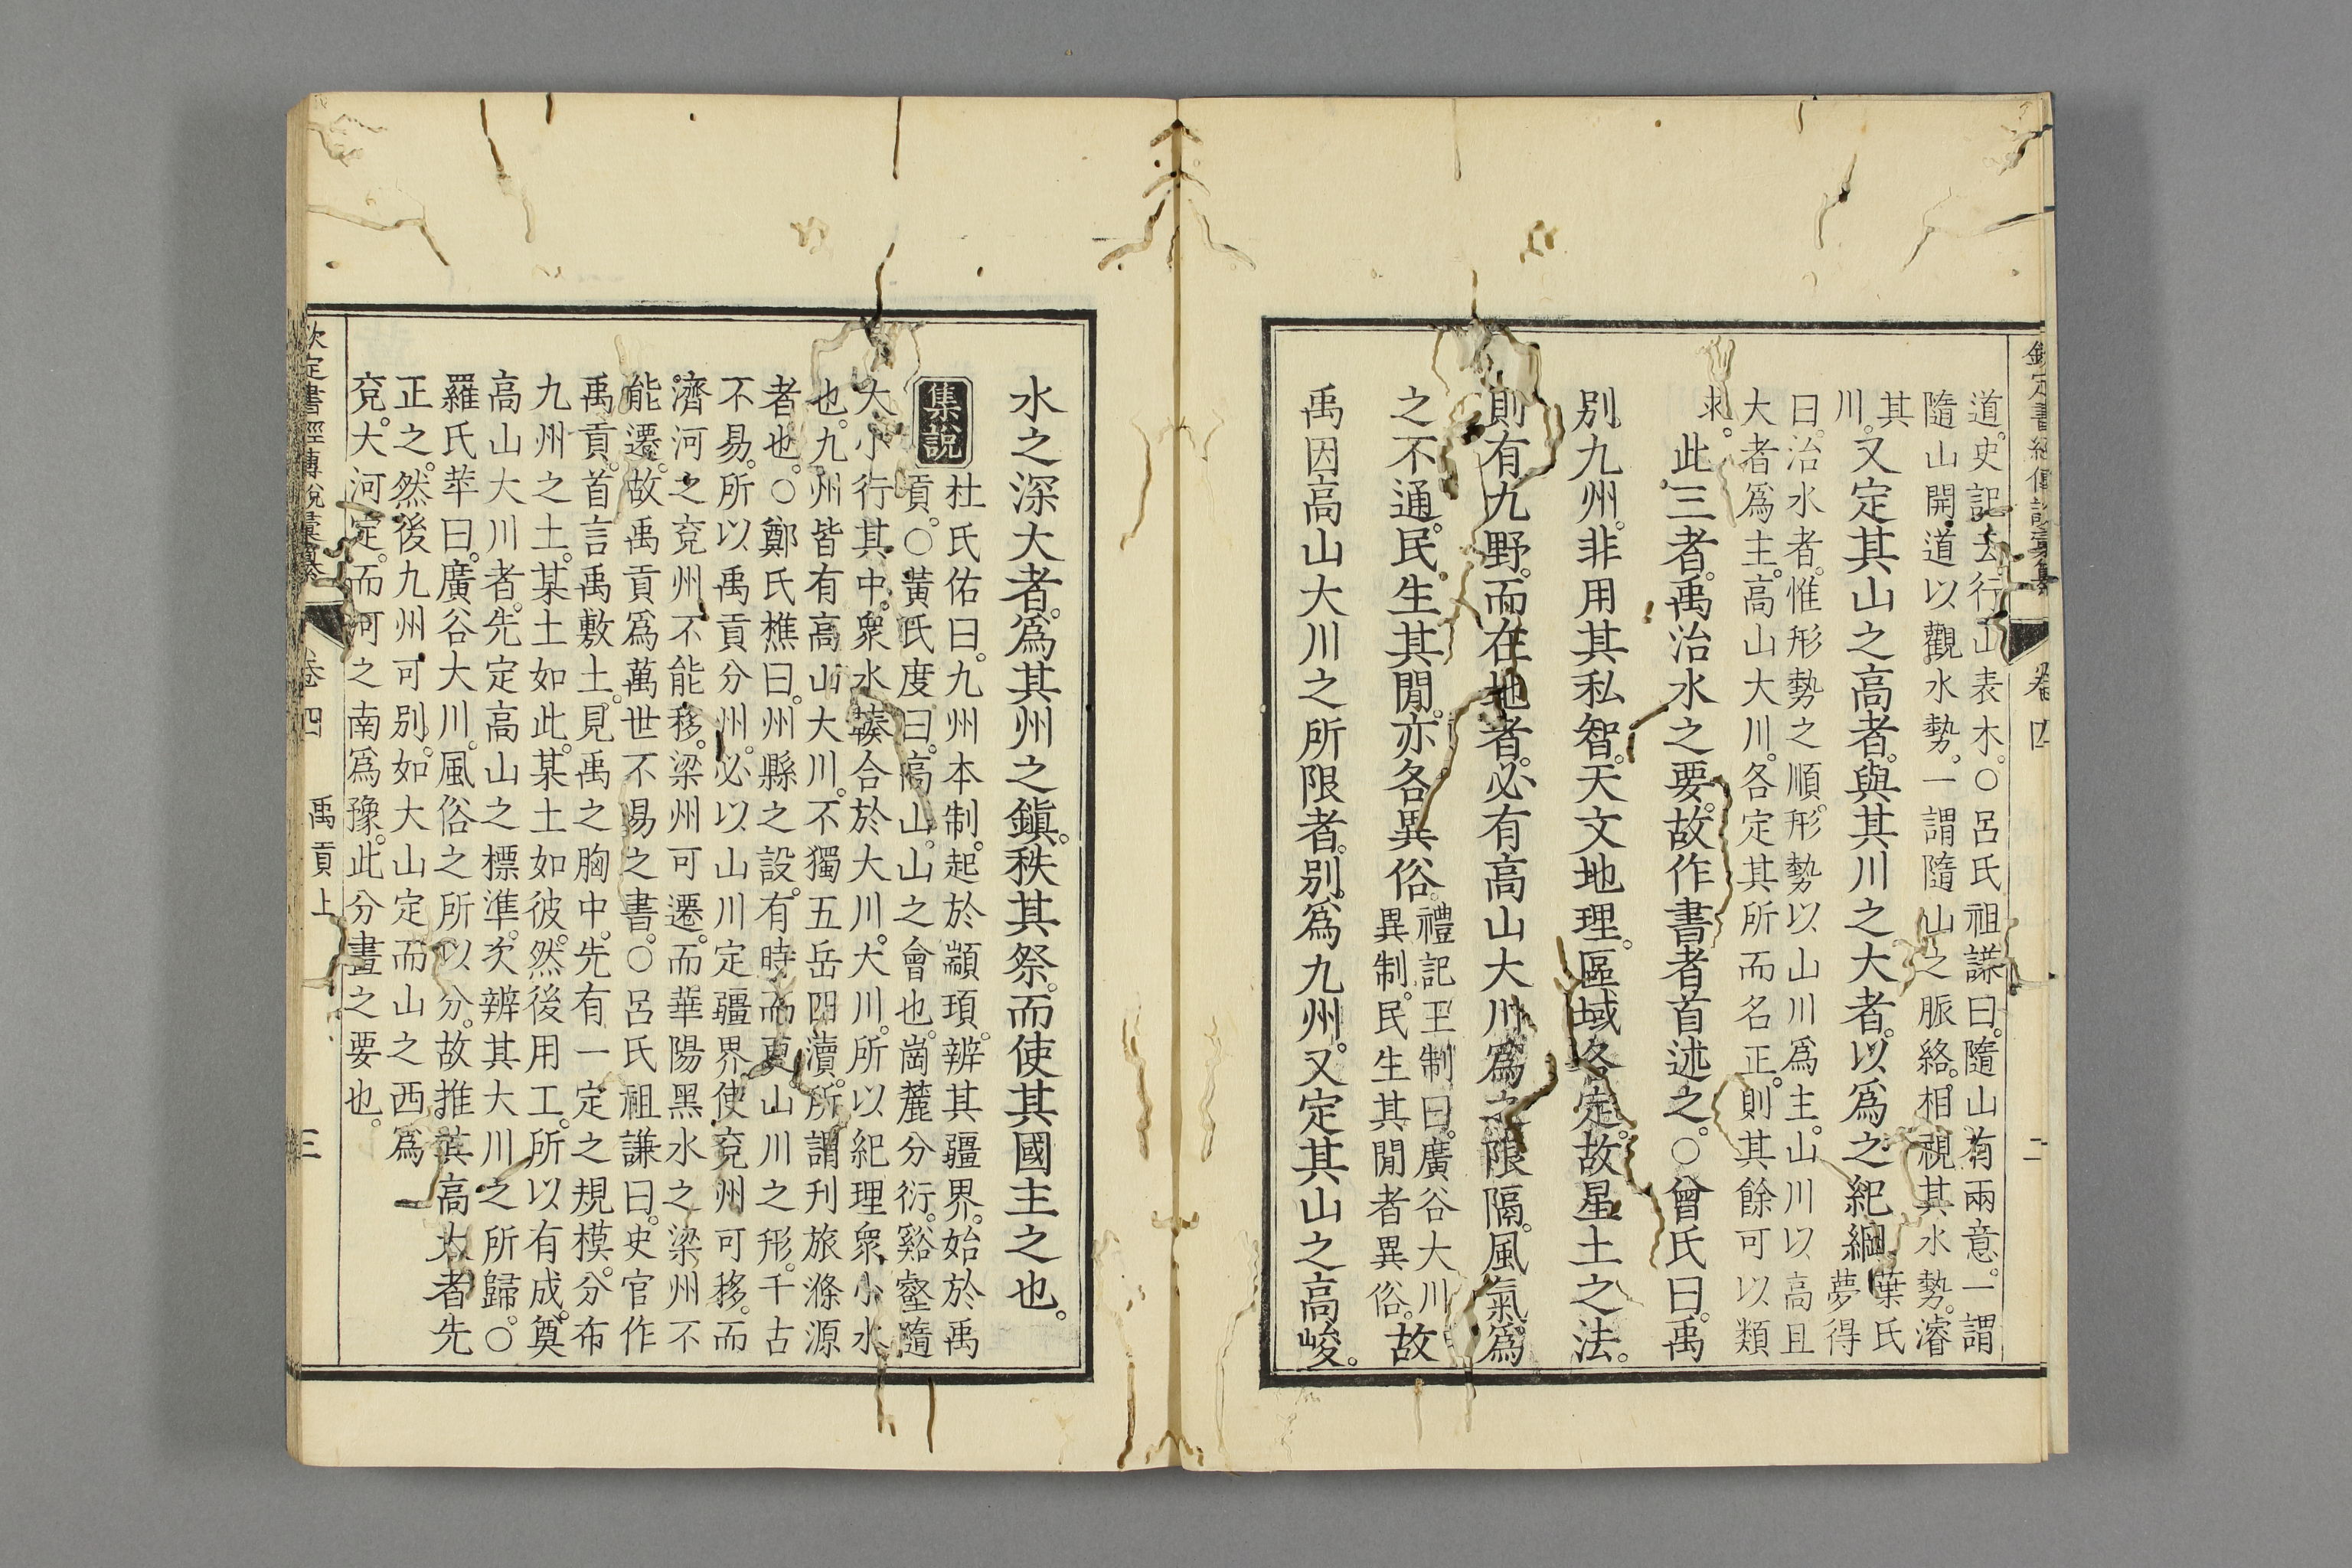 道。史記云行山表木。○呂氏祖謙曰。隨山有兩意。一謂
隨山開道以觀水勢。一謂隨山之脈絡。相視其水勢。濬
其
川。又定其山之高者。與其川之大者。以爲之紀綱。葉氏
夢得
曰。治水者。惟形勢之順。形勢以山川爲主。山川以高且
大者爲主。高山大川。各定其所而名正。則其餘可以類
求。此三者。禹治水之要。故作書者首述之。○曾氏曰。禹
別九州。非用其私智。天文地理。區域各定。故星土之法。
則有九野。而在地者。必有高山大川爲之限隔。風氣爲
之不通。民生其閒。亦各異俗。禮記王制曰。廣谷大川
異制。民生其閒者異俗。故
禹因高山大川之所限者。別爲九州。又定其山之高峻。
水之深大者。爲其州之鎭。秩其祭。而使其國主之也。
集說
杜氏佑曰。九州本制。起於顓頊。辨其疆界。始於禹
貢。○黃氏度曰。高山。山之會也。崗麓分衍。谿壑隨
大小行其中。衆水轃合於大川。大川。所以紀理衆小水
也。九州皆有高山大川。不獨五岳四瀆。所謂刋旅滌源
者也。○鄭氏樵曰。州縣之設。有時而更。山川之形。千古
不易。所以禹貢分州。必以山川定疆界。使兗州可移。而
濟河之兗州不能移。梁州可遷。而華陽黑水之梁州不
能遷。故禹貢爲萬世不易之書。○呂氏祖謙曰。史官作
禹貢。首言禹敷土。見禹之胸中。先有一定之規模。分布
九州之土。某土如此。某土如彼。然後用工。所以有成。奠
高山大川者。先定高山之標準。次辨其大川之所歸。○
羅氏苹曰。廣谷大川。風俗之所以分。故推其高大者先
正之。然後九州可別。如大山定而山之西爲
兗。大河定。而河之南爲豫。此分畫之要也。
欽定書經傳說彙纂 卷四 禹貢上 三